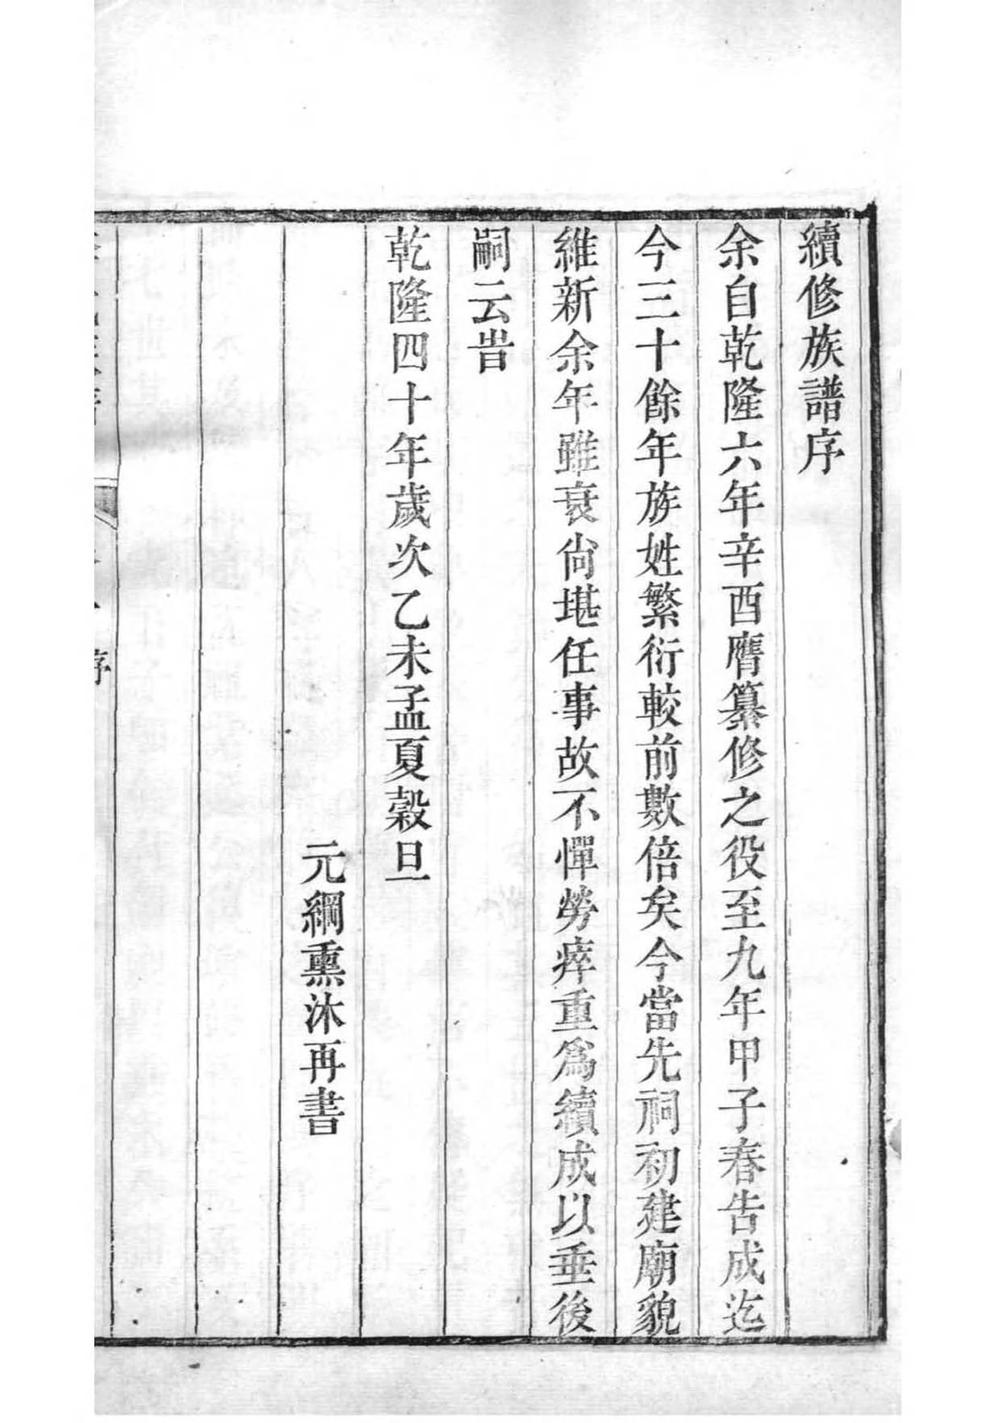 續修族譜序
余自乾隆六年辛酉膺纂修之役至九年甲子春告成迄
今三十餘年族姓繁衍較前數倍矣今當先祠初建廟貌
維新余年雖衰尙堪任事故不憚勞瘁重爲續成以垂後
嗣云旹
乾隆四十年歲次乙未孟夏穀旦
元綱熏沐再書
序